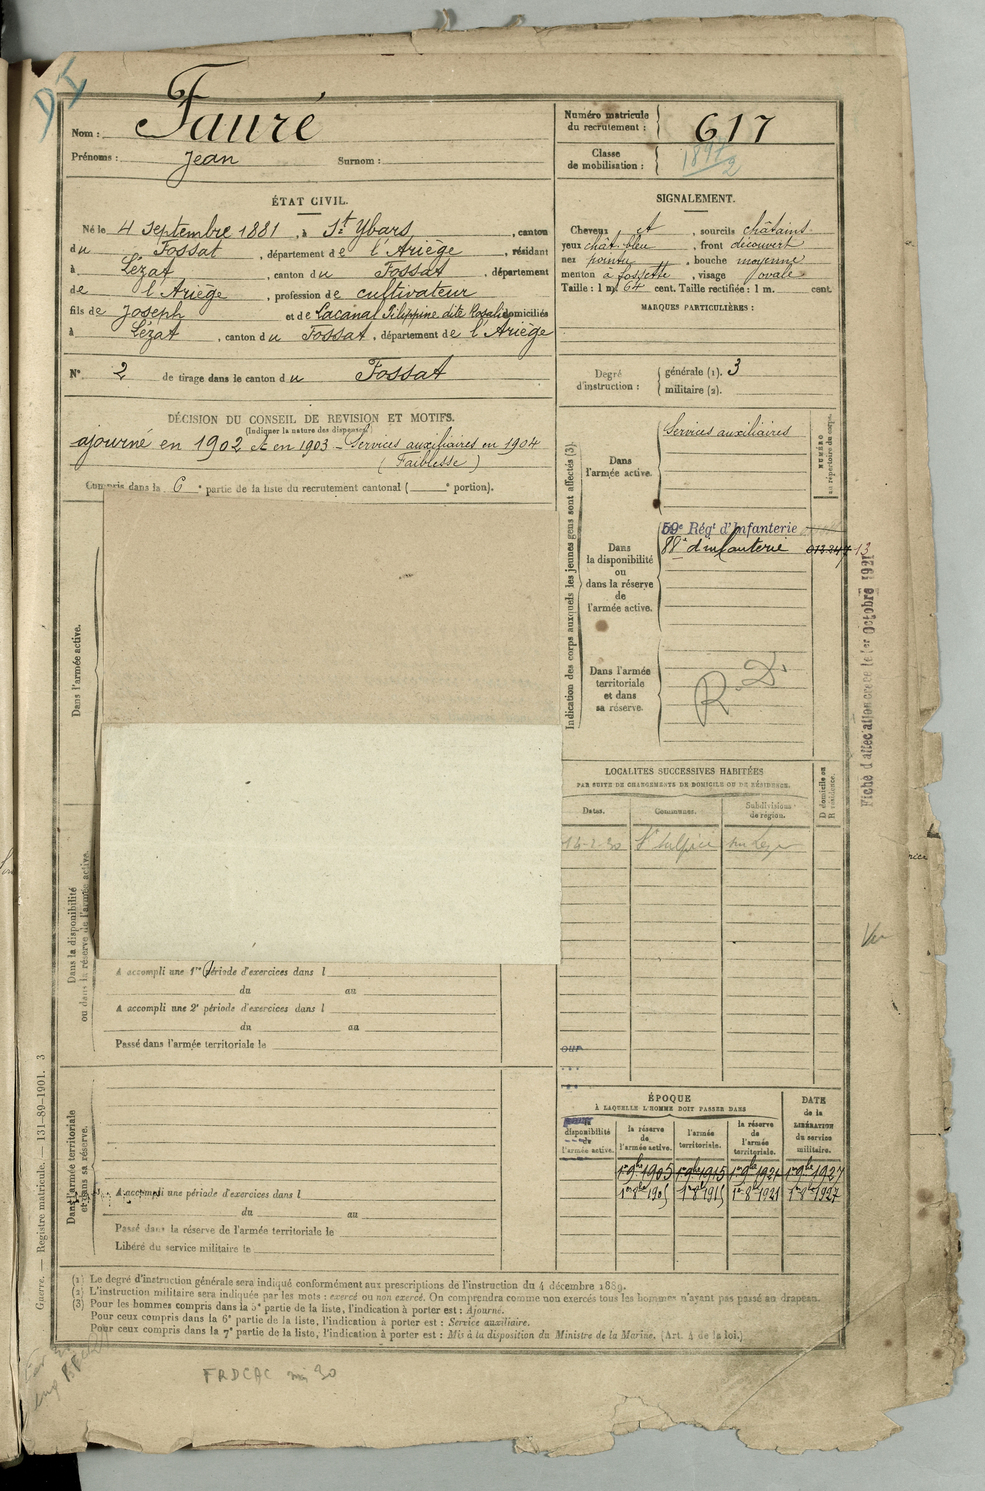 D I
Nom : Fauré
Prénoms : Jean Surnom :
Numéro matricule du recrutement : 617
Classe de mobilisation :
ÉTAT CIVIL.
Né le 4 septembre 1881, à St Ybars, canton
du Fossat, département de l'Ariège, résidant
à Lézat, canton du Fossat, département
de l'Ariège, profession de cultivateur
fils de Joseph et de Lacanal Filippine dite Rosalie domiciliés
à Lézat, canton du Fossat, département de l'Ariège
N° 2 de tirage dans le canton du Fossat
SIGNALEMENT.
Cheveux et, sourcils châtains.
yeux chât. bleu, front découvert
nez pointu, bouche moyenne
menton à fossette, visage ovale
Taille : 1 m. 64 cent. Taille rectifiée : 1 m. cent.
MARQUES PARTICULIÈRES :
Degré d'instruction :
générale (1). 3
militaire (2).
DÉCISION DU CONSEIL DE REVISION ET MOTIFS.
(Indiquer la nature des dispenses.)
ajourné en 1902 et en 1903 - Services auxiliaires en 1904
(Faiblesse)
Compris dans la 6e partie de la liste du recrutement cantonal ( e portion).
Indication des corps auxquels les jeunes gens sont affectés (3).
NUMÉRO au répertoire du corps.
Dans l'armée active.
Services auxiliaires
Dans la disponibilité ou dans la réserve de l'armée active.
59e Régt d'Infanterie
88e d'infanterie
Dans l'armée territoriale et dans sa réserve.
R. D.
Fiche d'affectation créée le 1er Octobre 1921
LOCALITÉS SUCCESSIVES HABITÉES
PAR SUITE DE CHANGEMENTS DE DOMICILE OU DE RÉSIDENCE.
Dates. Communes. Subdivisions de région. D domicile ou R résidence.
14-2-30 St Sulpice sur Lèze
Dans l'armée active.
Dans la disponibilité ou dans la réserve de l'armée active.
A accompli une 1re période d'exercices dans l
du au
A accompli une 2e période d'exercices dans l
du au
Passé dans l'armée territoriale le
Dans l'armée territoriale et dans sa réserve.
A accompli une période d'exercices dans l
du au
Passé dans la réserve de l'armée territoriale le
Libéré du service militaire le
ÉPOQUE
À LAQUELLE L'HOMME DOIT PASSER DANS
DATE de la LIBÉRATION du service militaire.
disponibilité de l'armée active.
la réserve de l'armée active.
l'armée territoriale.
la réserve de l'armée territoriale.
1er 9bre 1905 1er 9bre 1915 1er 9bre 1921 1er 9bre 1927
1er 8bre 1905 1er 8bre 1915 1er 8bre 1921 1er 8bre 1927
Guerre. — Registre matricule. — 131-89-1901. 3
(1) Le degré d'instruction générale sera indiqué conformément aux prescriptions de l'instruction du 4 décembre 1889.
(2) L'instruction militaire sera indiquée par les mots : exercé ou non exercé. On comprendra comme non exercés tous les hommes n'ayant pas passé au drapeau.
(3) Pour les hommes compris dans la 5e partie de la liste, l'indication à porter est : Ajourné.
Pour ceux compris dans la 6e partie de la liste, l'indication à porter est : Service auxiliaire.
Pour ceux compris dans la 7e partie de la liste, l'indication à porter est : Mis à la disposition du Ministre de la Marine. (Art. 4 de la loi.)